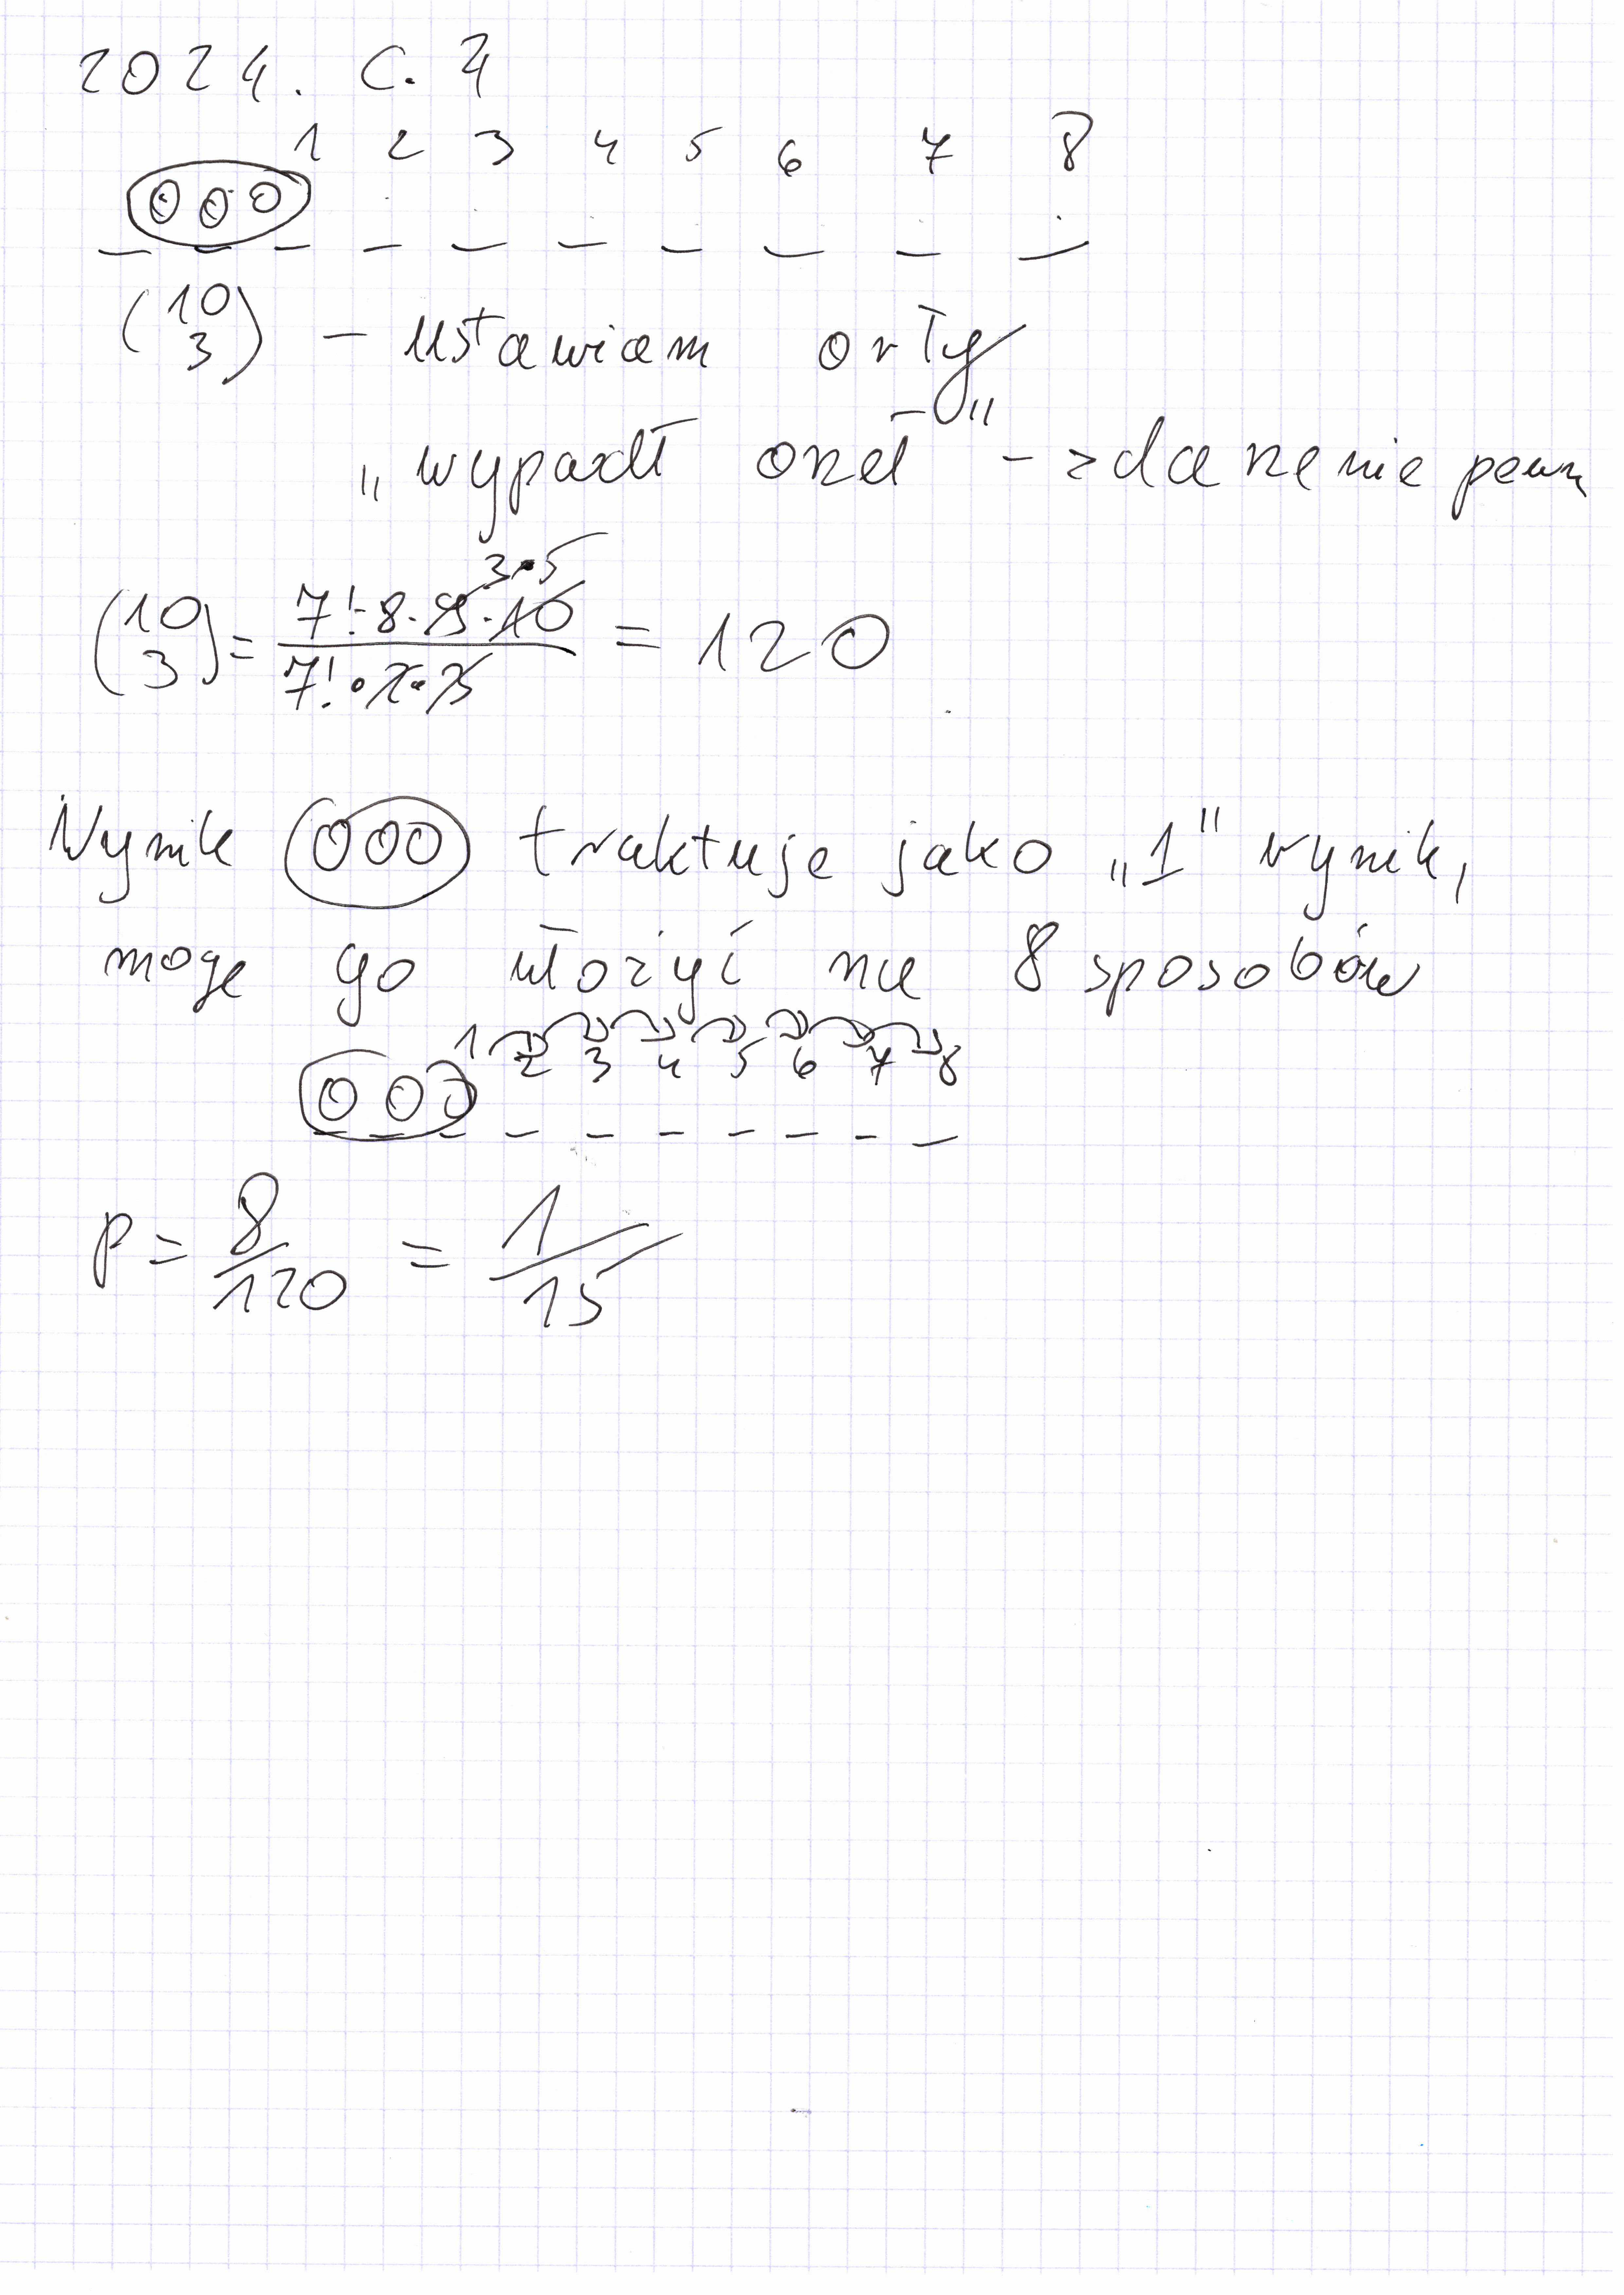 2024. C. 7
1 2 3 4 5 6 7 8
O O O
_ _ _ _ _ _ _ _ _ _
(10 3) – ustawiam orły
„wypadł orzeł" – zdarzenie pewn
(10 3) = 7!·8·9·10 / 7!·2·3 = 120
3·5
Wynik OOO traktuje jako „1" wynik,
moge go ułożyć na 8 sposobów
1 2 3 4 5 6 7 8
O O O
_ _ _ _ _ _ _ _ _ _
P = 8/120 = 1/15